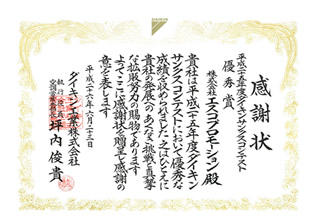 感謝状
平成二十五年度ダイキンサンクスコンテスト
優秀賞
株式会社エスコプロモーション殿
貴社は平成二十五年度ダイキン
サンクスコンテストにおいて優秀な
成績を収められました之はひとえに
貴社の発展へのあくなき挑戦と真摯
な拡販努力の賜物であります
よってここに感謝状を贈呈し感謝の
意を表します
平成二十六年六月二十三日
ダイキン工業株式会社
執行役員
坪内俊貴